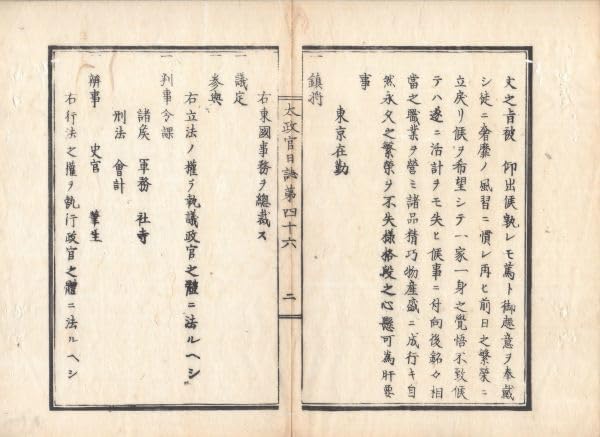 文之旨被　仰出候孰レモ篤ト御趣意ヲ奉戴
シ徒ニ奢靡ノ風習ニ慣レ再ヒ前日之繁榮ニ
立戻リ候ヲ希望シテ一家一身之覺悟不致候
テハ遂ニ活計ヲモ失ヒ候事ニ付向後銘々相
當之職業ヲ營ミ諸品精巧物産盛ニ成行キ自
然永久之繁榮ヲ不失樣格段之心懸可為肝要
事
東京在勤
鎮將
太政官日誌第四十六　二
右東國事務ヲ總裁ス
議定
參與
右立法ノ權ヲ執議政官之體ニ法ルヘシ
判事分課
諸侯　軍務　社寺
刑法　會計
辨事　史官　筆生
右行法之權ヲ執行政官之體ニ法ルヘシ